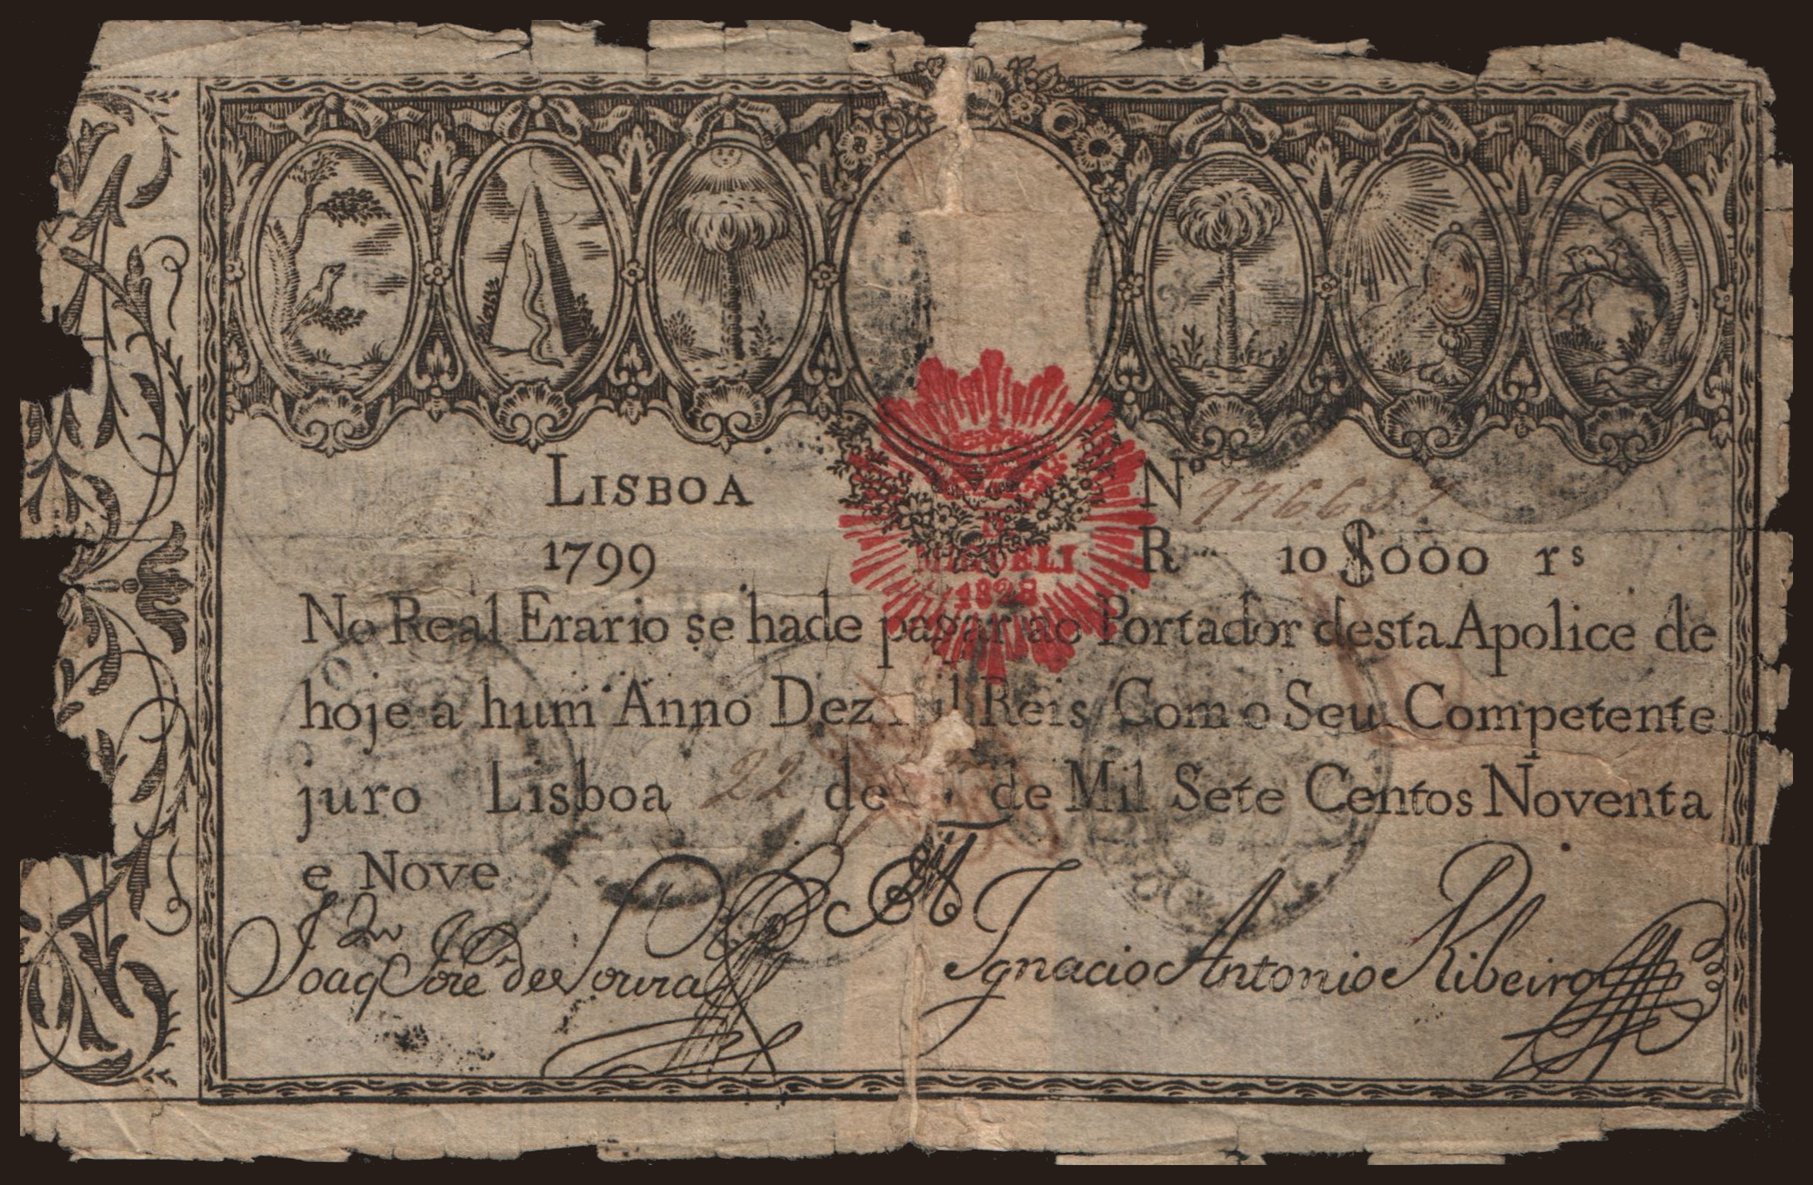 LISBOA
Nº
1799
R 10$000 rs
1828
No Real Erario se hade pagar ao Portador desta Apolice de
hoje a hum Anno Dez Mil Reis Com o Seu Competente
juro Lisboa 22 de de Mil Sete Centos Noventa
e Nove
Joaq José de Souza
Ignacio Antonio Ribeiro